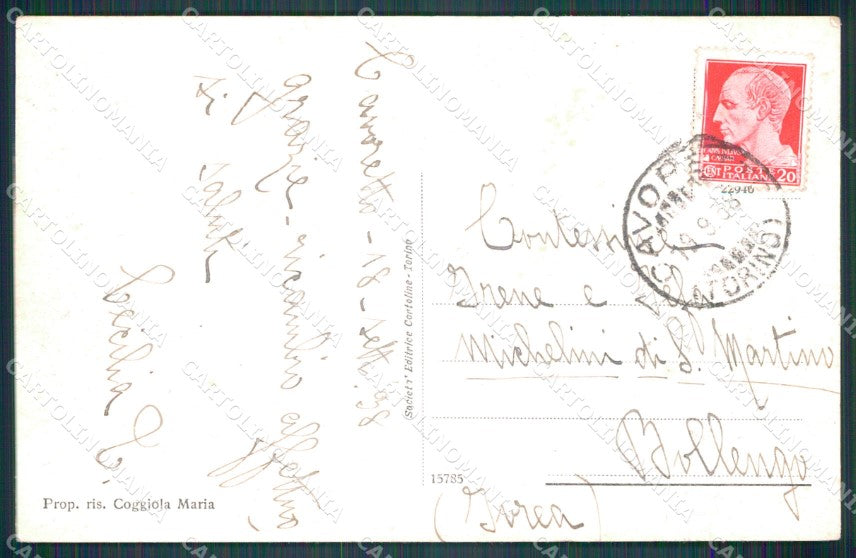 18 - Sett. 38
grazie - ricambio affettuo
si saluti
Cecilia
Prop. ris. Coggiola Maria
Societa' Editrice Cartoline - Torino
15785
POSTE
ITALIANE
CENT 20
22940
CAVOR
(TORINO)
Contessine
Irene e
Michelini di S. Martino
Bollengo
(Ivrea)
CARTOLINOMANIA